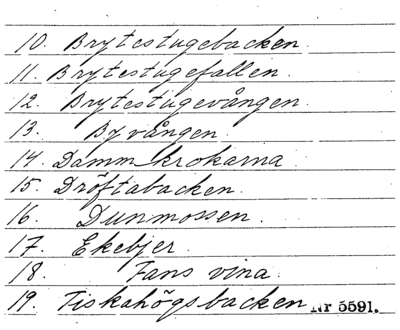 10. Brytestugebacken.
11. Brytestugefallen.
12. Brytestugevången.
13. Byvången.
14. Dammkrokarna
15. Dröftabacken.
16. Dunmossen.
17. Ekebjer.
18. Fans vina.
19. Fiskahögsbacken
Nr 5591.